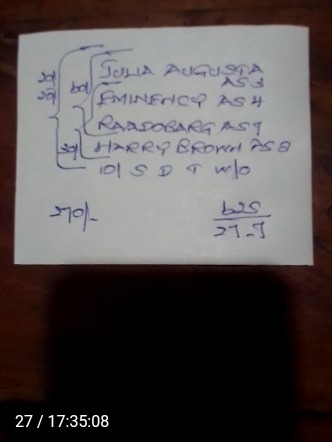 JULIA AUGUSTA
AS 3
EMINENCY AS 4
RAADOBARG AS 7
HARRY BROWN AS 8
10/ S D T W/O
270/-
b25
27-J
27 / 17:35:08